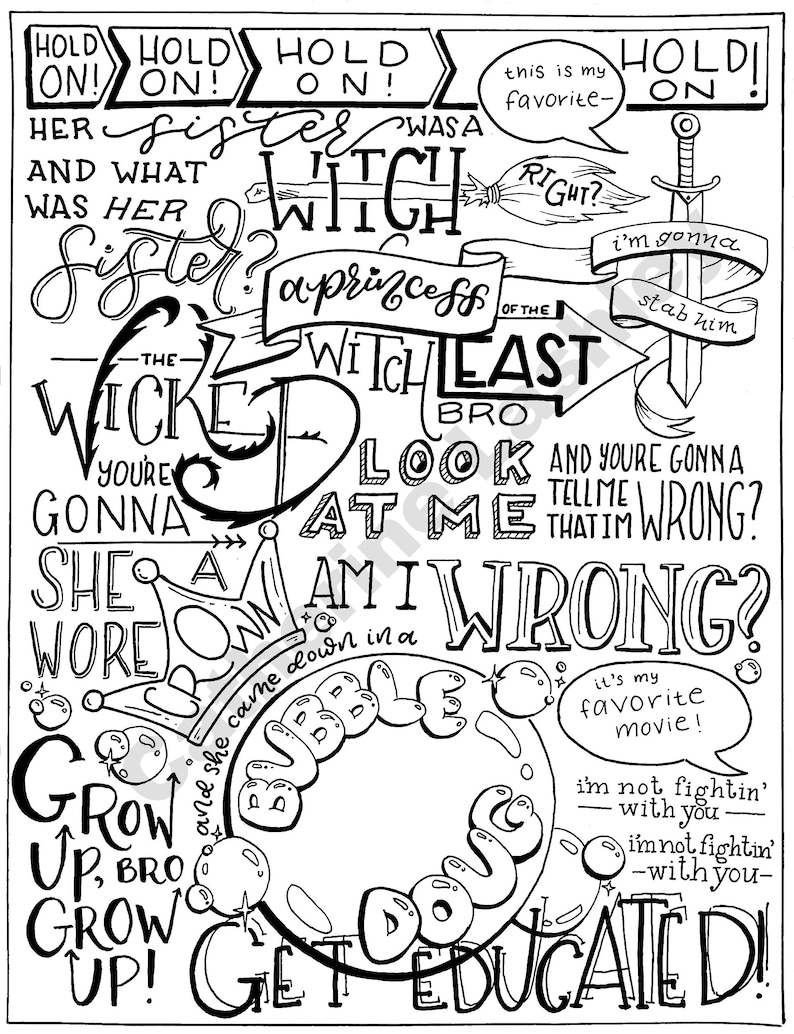 HOLD ON! HOLD ON! HOLD ON! HOLD ON!
this is my
favorite-
HER sister WAS A
WITCH
RIGHT?
AND WHAT
WAS HER
sister?
a princess
i'm gonna
stab him
THE
WICKED
WITCH
OF THE
EAST
BRO
YOU'RE
GONNA
LOOK
AT ME
AND YOU'RE GONNA
TELL ME
THAT IM WRONG?
AM I WRONG?
SHE
WORE
A
CROWN
and she came down in a
BUBBLE
DOUG
it's my
favorite
movie!
i'm not fightin'
with you
i'm not fightin'
-with you-
GROW
UP, BRO
GROW
UP!
GET EDUCATED!!
Catherine Lashley